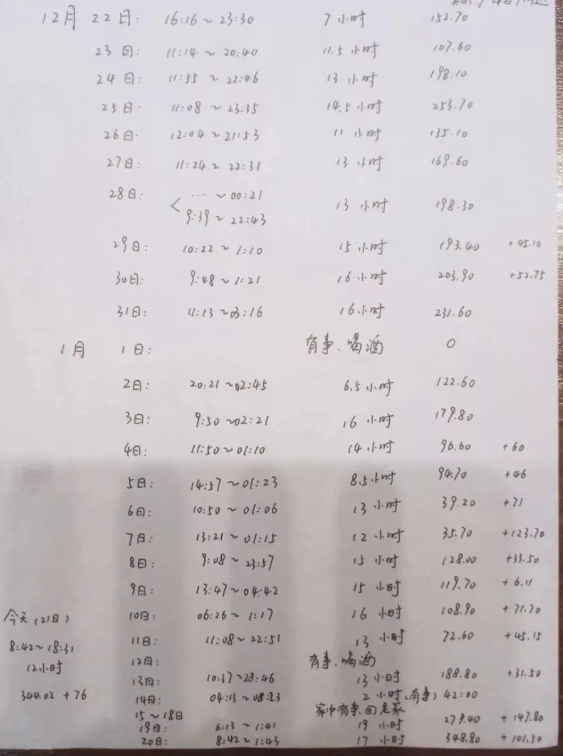 12月 22日: 16:16~23:30 7小时 152.70
23日: 11:14~20:40 11.5小时 107.60
24日: 11:55~22:46 13小时 198.10
25日: 11:08~23:35 14.5小时 253.70
26日: 12:04~21:53 11小时 135.10
27日: 11:24~22:31 13小时 169.60
28日: < ····~00:21
9:39~22:43 13小时 198.30
29日: 10:22~1:10 15小时 193.40 +45.10
30日: 9:48~1:21 16小时 203.90 +52.75
31日: 11:13~03:16 16小时 231.60
1月 1日: 有事、喝酒 0
2日: 20:21~02:45 6.5小时 122.60
3日: 9:50~02:21 16小时 179.80
4日: 11:50~01:10 14小时 96.60 +60
5日: 14:57~01:23 8.5小时 94.70 +46
6日: 10:50~01:06 13小时 39.20 +71
7日: 13:21~01:15 12小时 35.70 +123.70
8日: 9:08~23:57 15小时 128.00 +33.50
9日: 13:47~04:42 15小时 119.70 +6.11
10日: 06:26~1:17 16小时 108.90 +71.70
11日: 11:08~22:51 13小时 72.60 +45.15
12日: 有事、喝酒
13日: 10:37~23:46 13小时 188.80 +31.50
14日: 04:15~08:23 2小时(有事) 42.00
15~18日 家中有事、回老家
19日: 6:13~1:41 19小时 279.40 +147.80
20日: 8:42~1:43 17小时 348.80 +101.50
今天(21日)
8:42~18:31
12小时
344.02 +76